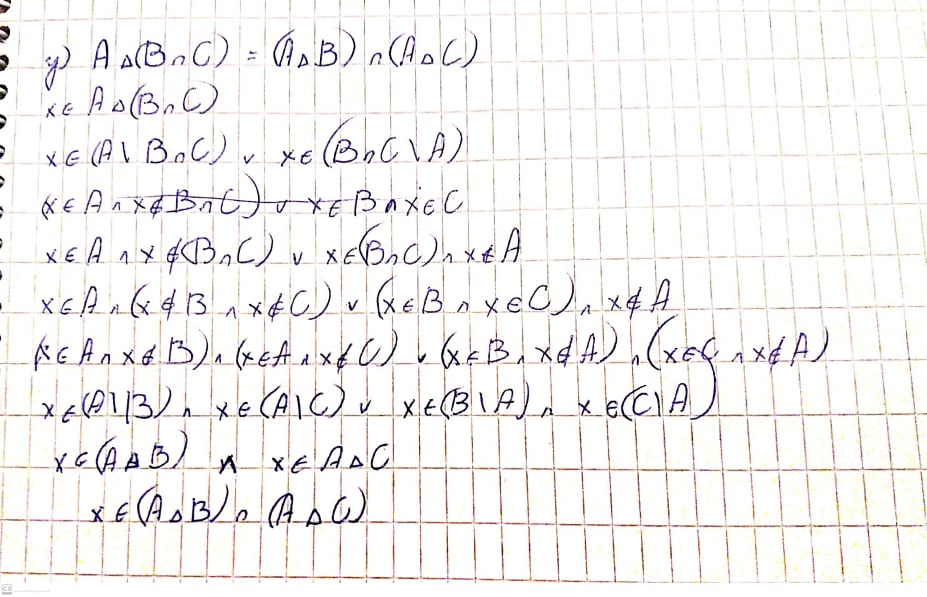 y) A Δ (B ∩ C) = (A Δ B) ∩ (A Δ C)
x ∈ A Δ (B ∩ C)
x ∈ (A \ B ∩ C) ∨ x ∈ (B ∩ C \ A)
(x ∈ A ∧ x ∉ B ∩ C) ∨ x ∈ B ∧ x ∈ C
x ∈ A ∧ x ∉ (B ∩ C) ∨ x ∈ (B ∩ C) ∧ x ∉ A
x ∈ A ∧ (x ∉ B ∧ x ∉ C) ∨ (x ∈ B ∧ x ∈ C) ∧ x ∉ A
(x ∈ A ∧ x ∉ B) ∧ (x ∈ A ∧ x ∉ C) ∨ (x ∈ B ∧ x ∉ A) ∧ (x ∈ C ∧ x ∉ A)
x ∈ (A \ B) ∧ x ∈ (A \ C) ∨ x ∈ (B \ A) ∧ x ∈ (C \ A)
x ∈ (A Δ B) ∧ x ∈ A Δ C
x ∈ (A Δ B) ∩ (A Δ C)
CS